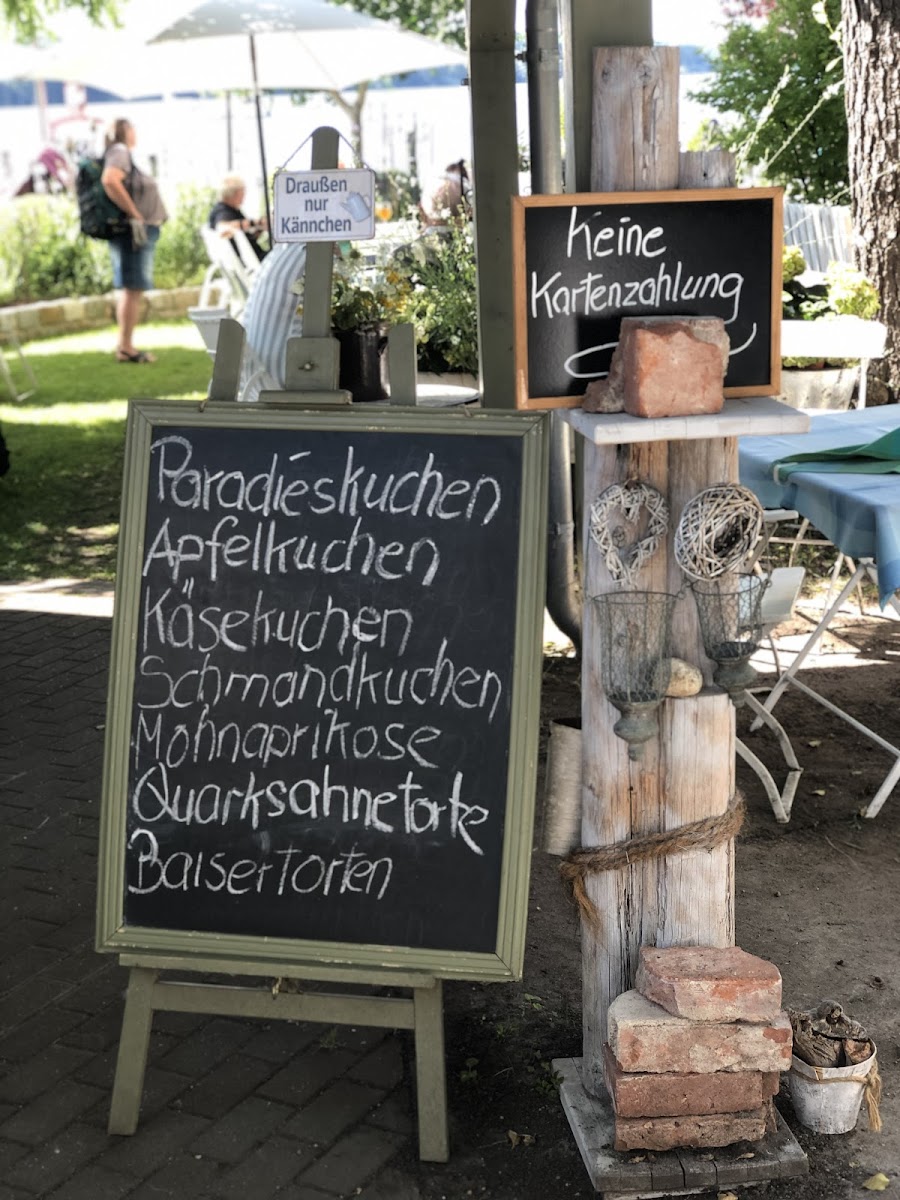 Draußen
nur
Kännchen
Keine
Kartenzahlung
Paradieskuchen
Apfelkuchen
Käsekuchen
Schmandkuchen
Mohnaprikose
Quarksahnetorte
Baisertorten